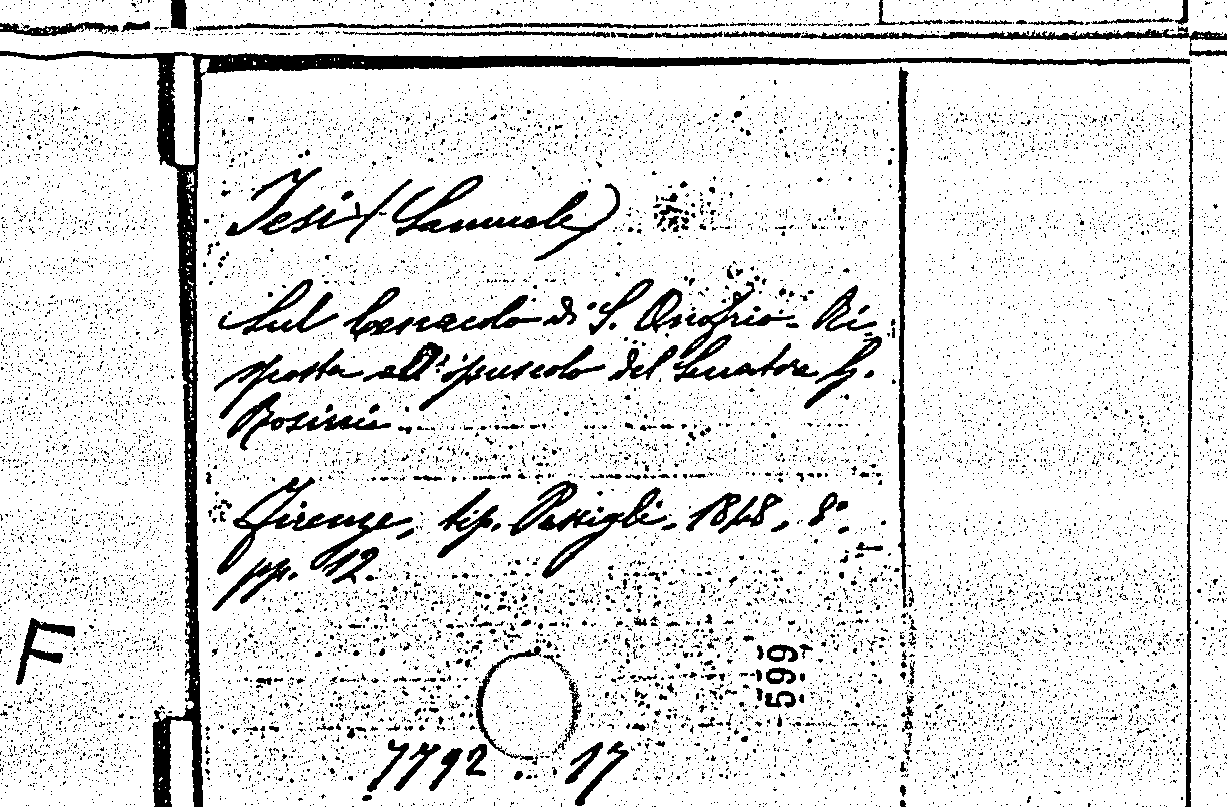 Jesi (Samuele)
Sul Cenacolo di S. Onofrio. Ri-
sposta all'opuscolo del Senatore G.
Rosini.
Firenze, tip. Passigli, 1848, 8°,
pp. 12.
F
599
7792.. 17